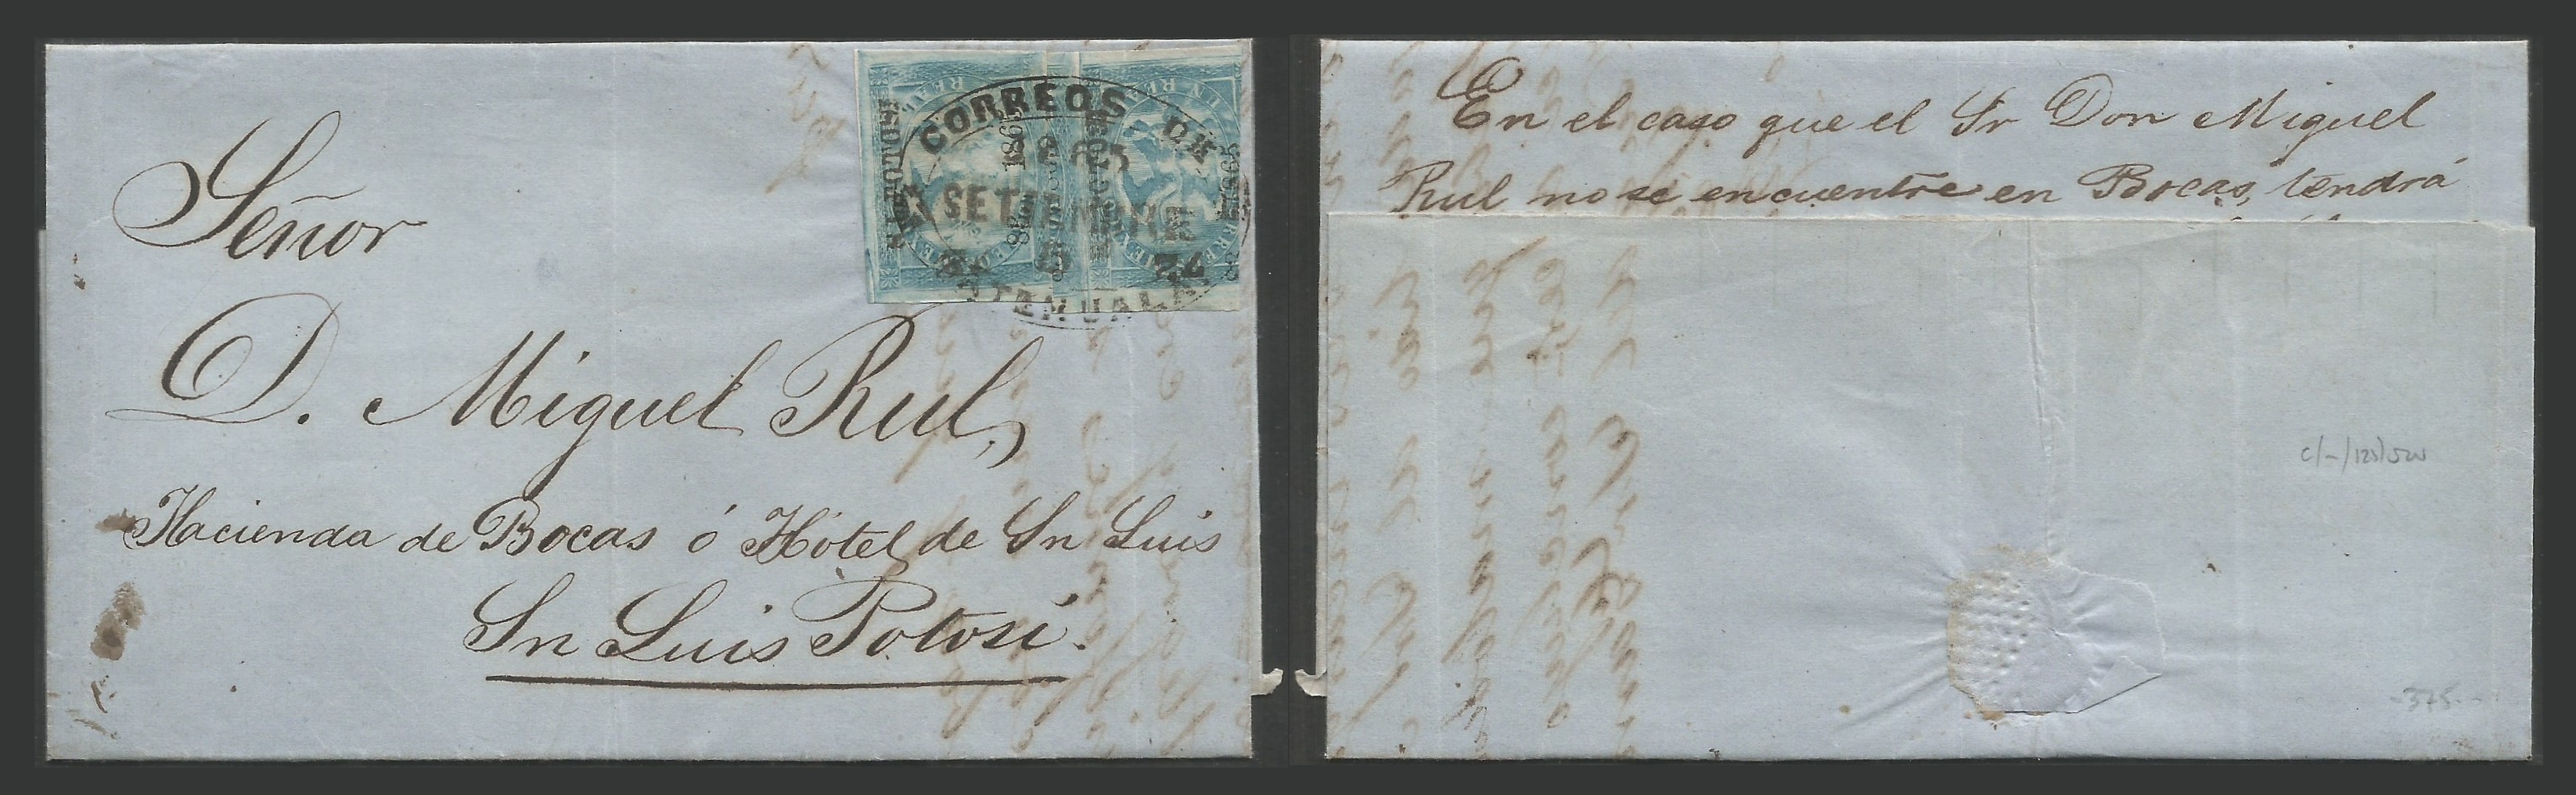 Señor
D. Miguel Rul,
Hacienda de Bocas ó Hótel de Sn Luis
Sn Luis Potosí.
CORREOS DE
SETIEMBRE
1865
UN REAL
En el caso que el Sr Don Miguel
Rul no se encuentre en Bocas, tendrá
375